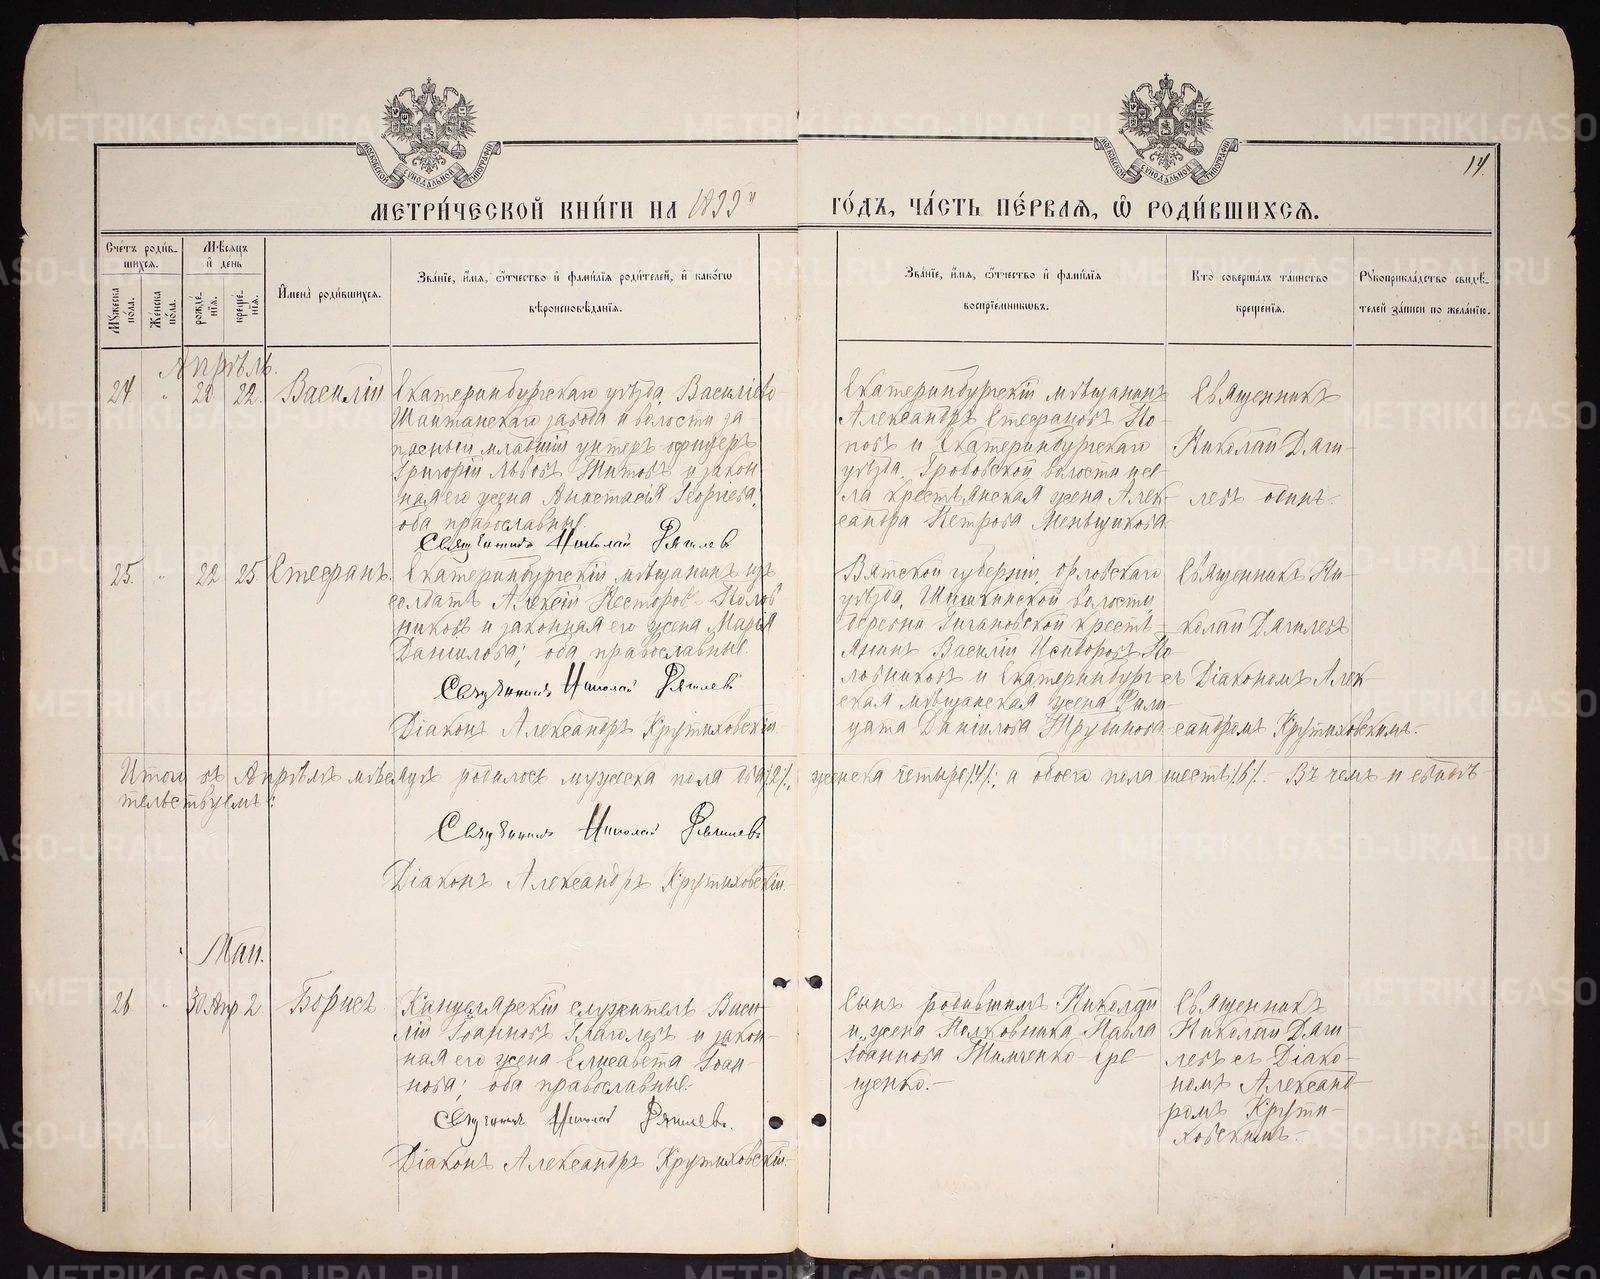 МОСКОВСКОЙ СѴНОДАЛЬНОЙ ТИПОГРАФІИ
МОСКОВСКОЙ СѴНОДАЛЬНОЙ ТИПОГРАФІИ
14.
МЕТРИ́ЧЕСКОЙ КНИ́ГИ НА 1899й ГО́ДЪ, ЧА́СТЬ ПЕ́РВАЯ, Ѽ РОДИ́ВШИХСЯ.
Сче́тъ роди́в-
шихся.
Му́жеска по́ла.
Же́нска по́ла.
Мѣ́сяцъ
и҆ день
рожде́-нія.
креще́-нія.
И҆мена̀ роди́вшихся.
Зва́ніе, и҆́мя, ѻ҆́тчество и҆ фами́лія роди́телей, и҆ како́гѡ
вѣроисповѣ́данія.
Зва́ніе, и҆́мя, ѻ҆́тчество и҆ фами́лія
воспріе́мниковъ.
Кто̀ соверша́лъ та́инство
креще́нія.
Рукоприкла́дство свидѣ́-
телей за́писи по жела́нію.
Апрѣль.
24 " 22 22. Василій
Екатеринбургскаго уѣзда, Василіево-
Шайтанскаго завода и волости за-
пасный младшій унтеръ-офицеръ
Григорій Львовъ Титовъ и закон-
ная его жена Анастасія Георгіева;
оба православные.
Священникъ Николай Дягилевъ
Екатеринбургскій мѣщанинъ
Александръ Стефановъ По-
повъ и Екатеринбургскаго
уѣзда, Гробовской волости и се-
ла крестьянская жена Алек-
сандра Петрова Меньщикова.
Священникъ
Николай Дяги-
левъ одинъ.
25. " 22 25. Стефанъ.
Екатеринбургскій мѣщанинъ изъ
солдатъ Алексій Несторовъ Полов-
никовъ и законная его жена Марья
Даніилова; оба православные.
Священникъ Николай Дягилевъ
Діаконъ Александръ Крутиховскій.
Вятской губерніи, Орловскаго
уѣзда,
волости,
деревни крестъ-
янинъ Василій Исидоровъ По-
ловниковъ и Екатеринбург-
ская мѣщанская жена Фили-
цата Даніилова Трубинова
Священникъ Ни-
колай Дягилевъ
съ Діакономъ Алек-
сандромъ Крутиховскимъ.
Итого въ Апрѣлѣ мѣсяцѣ родилось мужеска пола два /2/, женска четыре /4/; а обоего пола шесть /6/. Въ чемъ и свидѣ-
тельствуемъ:
Священникъ Николай Дягилевъ
Діаконъ Александръ Крутиховскій.
Май.
26 " 30 Апр 2 Борисъ
Канцелярскій служитель Васи-
лій Іоанновъ Глаголевъ и закон-
ная его жена Елисавета Іоан-
нова; оба православные.
Священникъ Николай Дягилевъ.
Діаконъ Александръ Крутиховскій.
Сынъ родившимъ Николай
и жена Полковника Павла
Іоаннова Тимченко-
Священникъ
Николай Дяги-
левъ съ Діако-
номъ Александ-
ромъ Крути-
ховскимъ.
METRIKI.GASO-URAL.RU